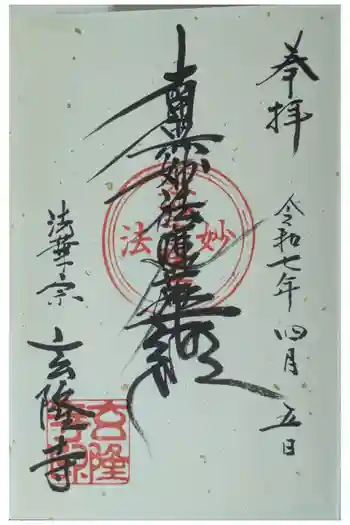 奉拝
令和七年四月五日
南無妙法蓮華経
妙法
法華宗
玄隆寺
玄隆
寺印